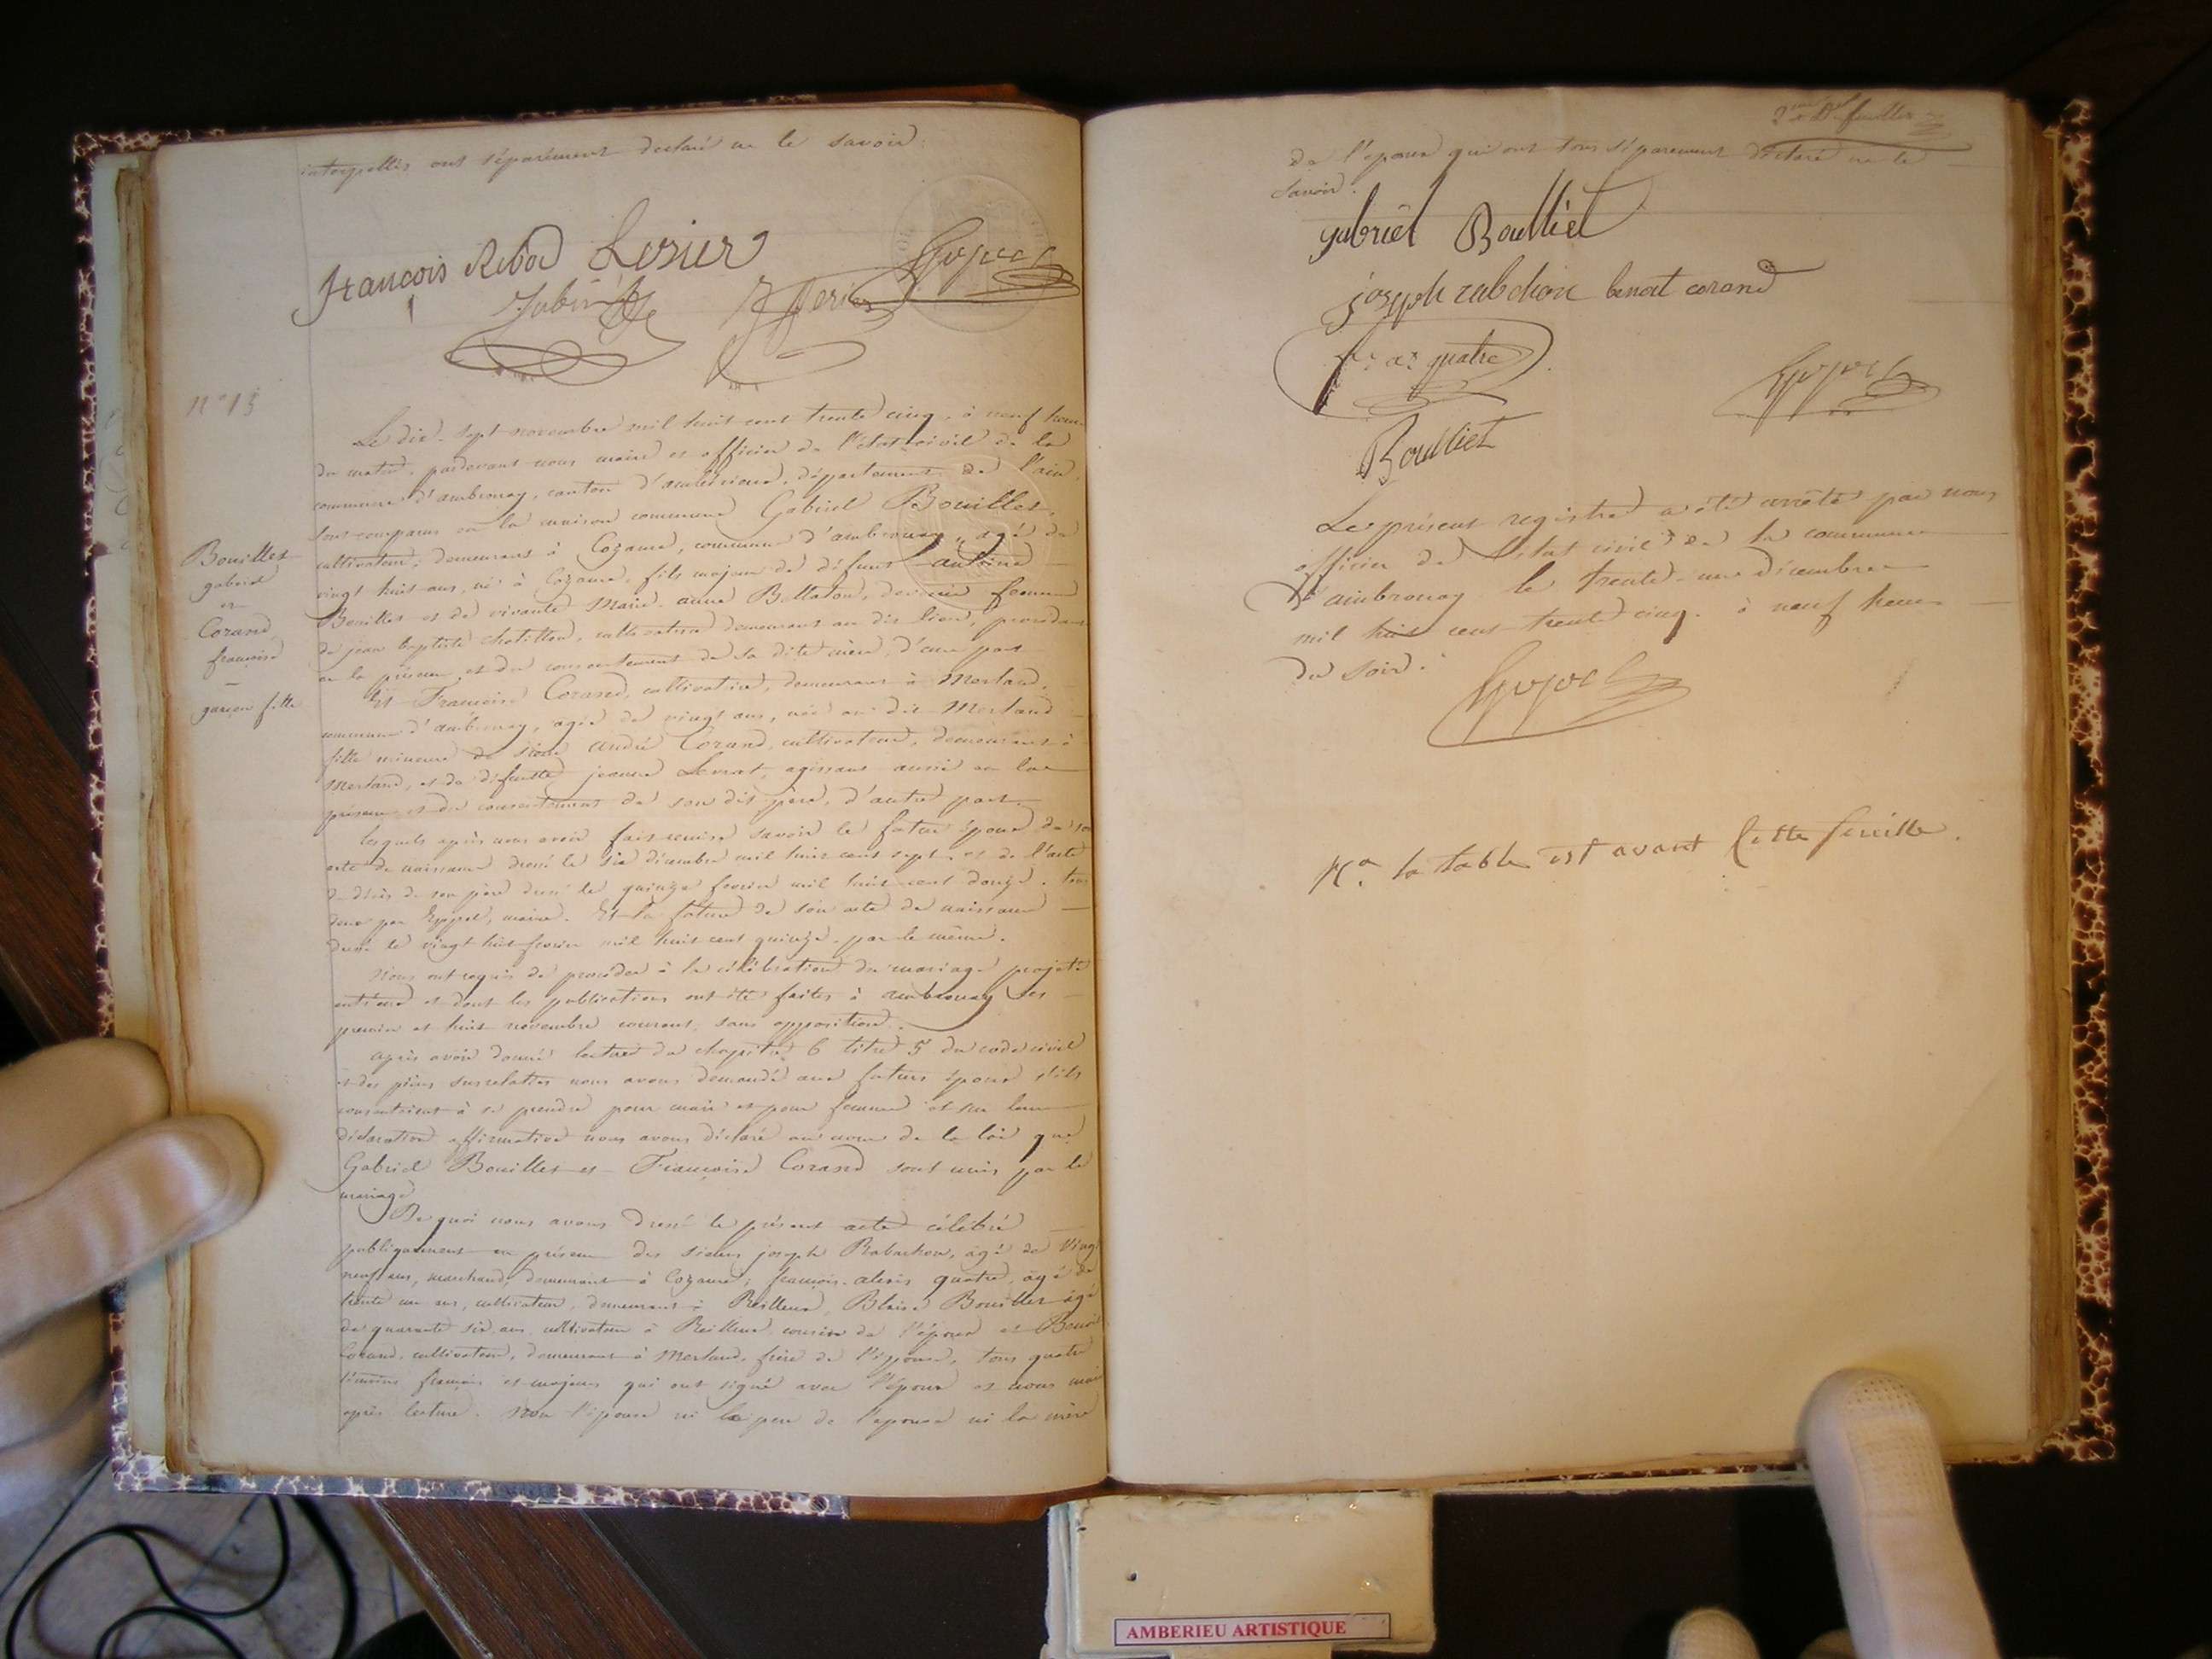 interpellés ont séparément declaré ne le savoir.
françois Ribod Lesieur
n° 13
Bouillet
gabriel
et
Corand
françoise
garçon fille
Le dix-sept novembre mil huit cent trente cinq, à neuf heures
du matin, pardevant nous maire et officier de l'état civil de la
commune d'ambronay, canton d'ambérieux, département de l'ain,
sont comparus en la maison commune Gabriel Bouillet,
cultivateur, demeurant à Cozance, commune d'ambronay, agé de
vingt huit ans, né à Cozance, fils majeur de défunt antoine
Bouillet et de vivante Marie anne Bellaton, devenue femme
de jean baptiste chatillon, cultivateur demeurant au dit lieu, procédant
en la présence et du consentement de sa dite mère, d'une part
Et Françoise Corand, cultivatrice, demeurant à Merland,
commune d'ambronay, agée de vingt ans, née au dit Merland
fille mineure de sieur andré Corand, cultivateur, demeurant à
Merland, et de défunte jeanne Levrat, agissant aussi en la
présence et du consentement de son dit père, d'autre part.
lesquels après nous avoir fait remise savoir le futur époux de son
acte de naissance dressé le six décembre mil huit cent sept et de l'acte
de décès de son père dressé le quinze fevrier mil huit cent douze, tous
deux par maire. Et la future de son acte de naissance
dressé le vingt huit fevrier mil huit cent quinze, par le même.
Nous ont requis de procéder à la célébration du mariage projeté
entr'eux et dont les publications ont été faites à ambronay les
premier et huit novembre courant, sans opposition.
après avoir donné lecture du chapitre 6 titre 5 du code civil
et des pièces susrelatées nous avons demandé aux futurs époux s'ils
consentaient à se prendre pour mari et pour femme et sur leur
déclaration affirmative nous avons déclaré au nom de la loi que
Gabriel Bouillet et Françoise Corand sont unis par le
mariage
De quoi nous avons dressé le présent acte célébré
publiquement en présence des sieurs joseph Rabachon, âgé de vingt
neuf ans, marchand, demeurant à Cozance; françois-alexis quatre, âgé de
trente un ans, cultivateur, demeurant à Blaise Bouillet âgé
de quarante six ans, cultivateur à cousin de l'époux et Benoit
Corand, cultivateur, demeurant à Merland, frère de l'épouse, tous quatre
témoins français et majeurs qui ont signé avec l'époux et nous maire
après lecture. Non l'épouse ni le père de l'epouse ni la mère
feuillet
de l'epoux qui ont tous séparement déclaré ne le
savoir.
gabriel Boulliet
joseph rabchon benoit corand
fs as quatre
Boulliet
Le présent registre a été arrêté par nous
officier de l'état civil de la commune
d'ambronay le trente-un décembre
mil huit cent trente cinq. à neuf heures
du soir.
Na la table est avant cette feuille.
AMBERIEU ARTISTIQUE